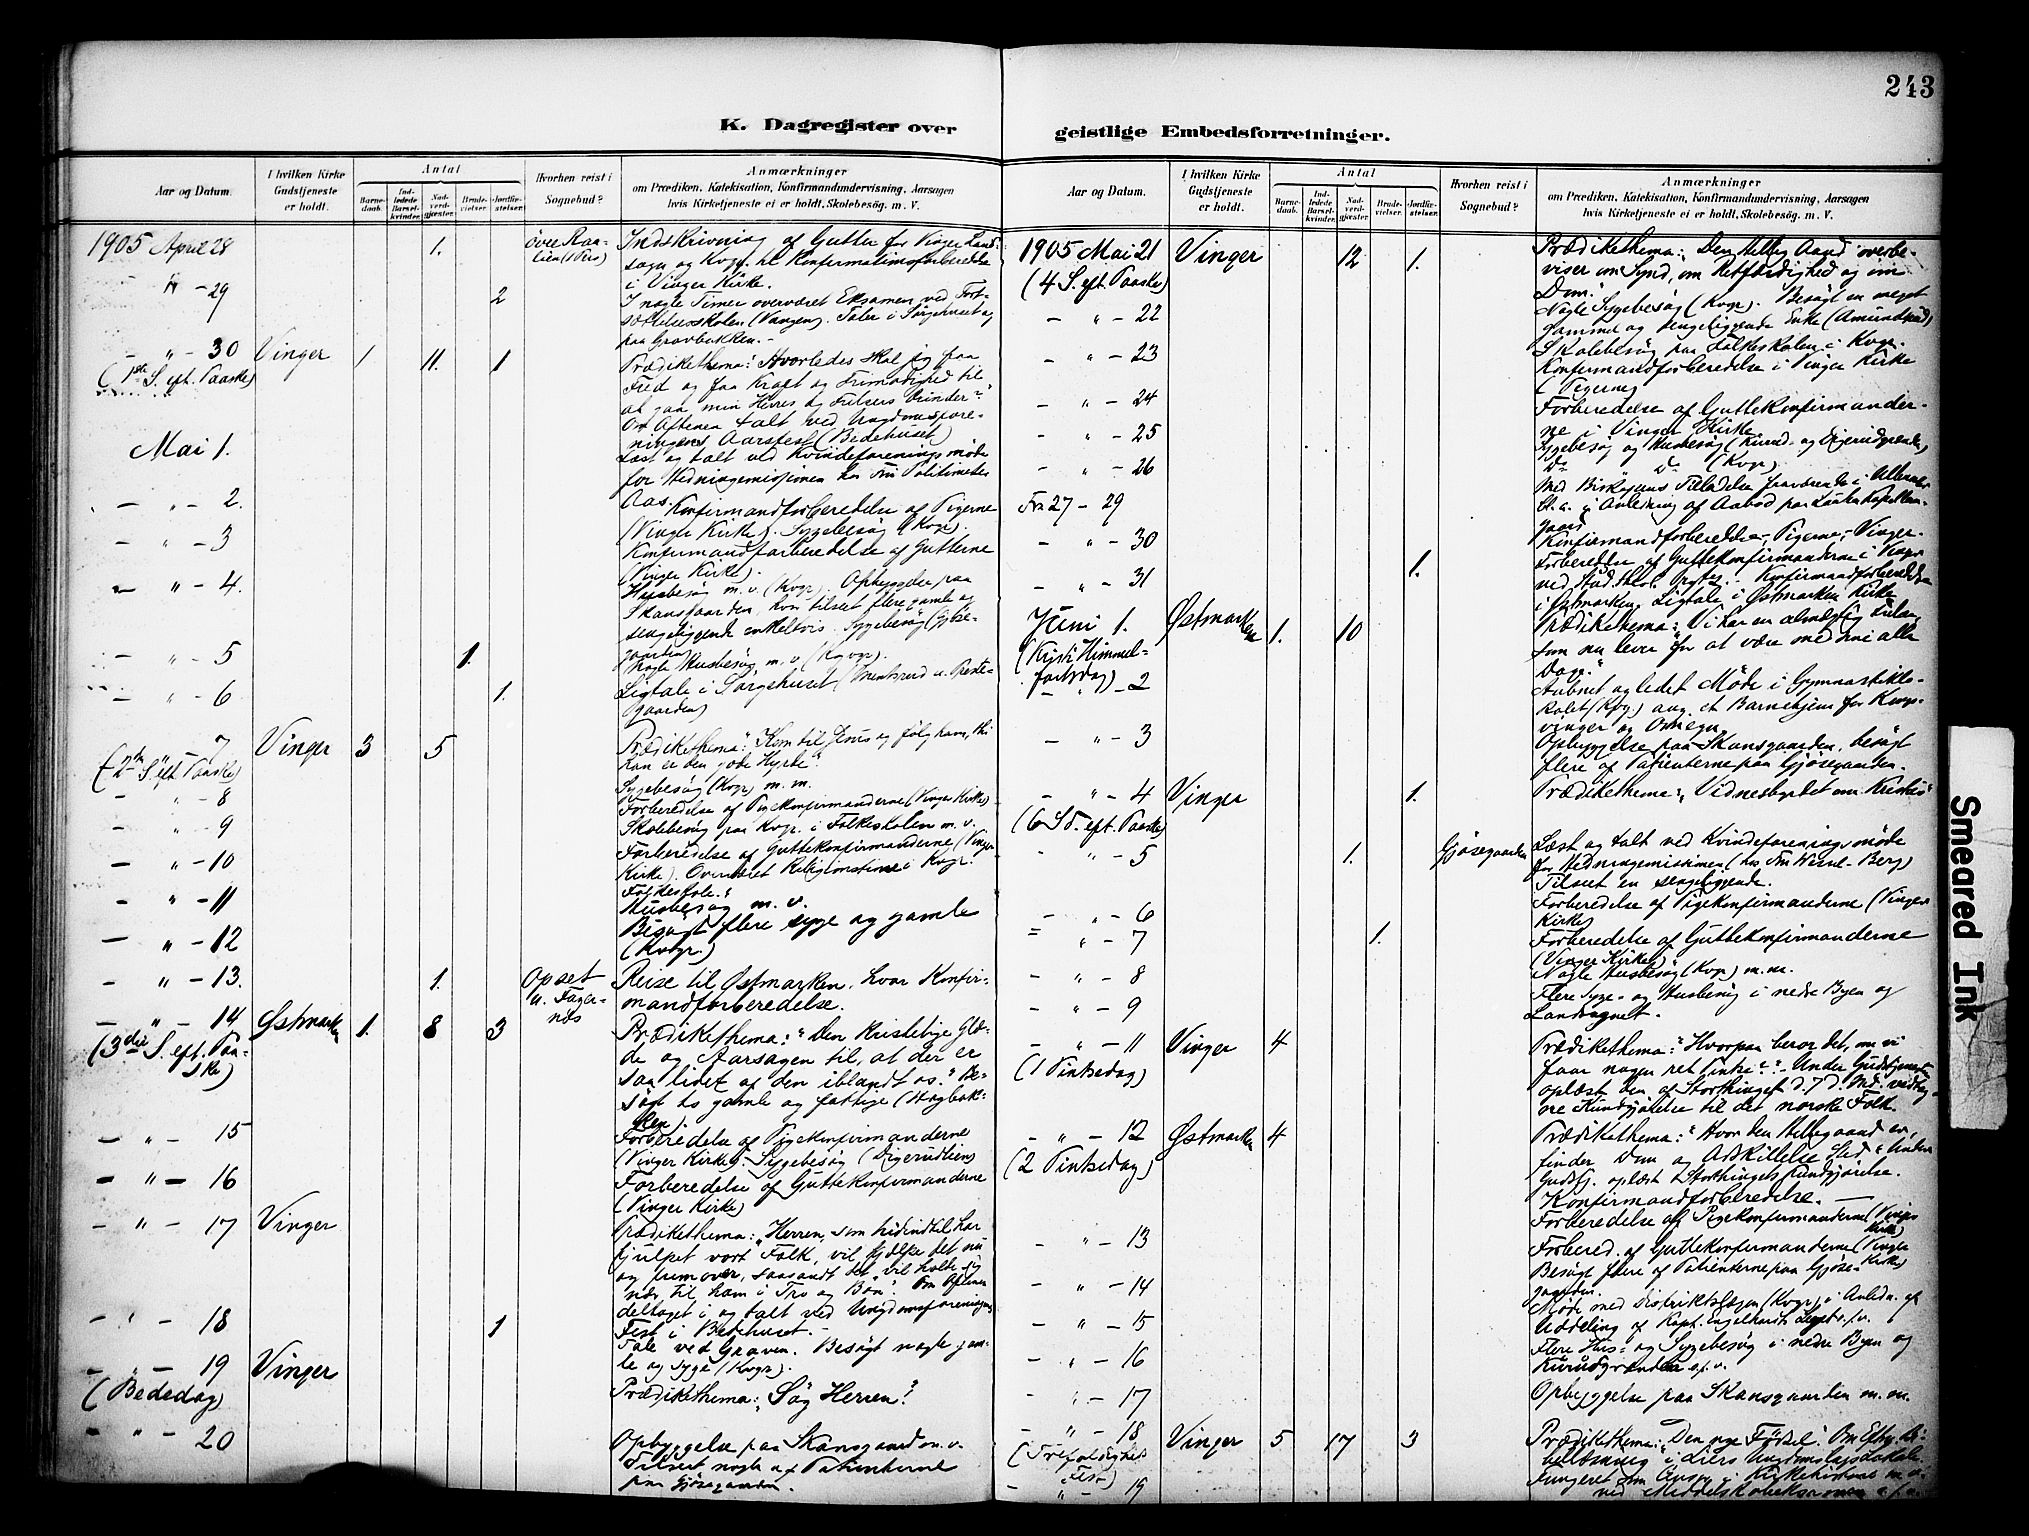 243
K. Dagregister over
geistlige Embedsforretninger.
Aar og Datum.
I hvilken Kirke Gudstjeneste er holdt.
Antal
Barnedaab.
Indledede Barselkvinder.
Nadverdgjæster.
Brudevielser.
Jordfæstelser.
Hvorhen reist i Sognebud?
Anmærkninger
om Prædiken, Katekisation, Konfirmandundervisning, Aarsagen
hvis Kirketjeneste ei er holdt, Skolebesøg. m. V.
1905 April 28 1.
Indskrivning af Gutter for Vinger Land-
sogn og Kvgr. til Konfirmationsforberedelse
i Vinger Kirke.
" - 29 2
I nogle Timer overværet Eksamen ved Fort-
sættelsesskolen (Vangen). Taler i Sørgehuset og
paa Gravbakken. -
- " - 30 Vinger 1 11. 1
(1ste S. eft. Paaske)
Prædikethema: Hvorledes skal jeg faa
Fred og faa Kraft og Frimodighed til
at gaa min Herres og Frelsers Ærinder?
Om Aftenen talt ved Ungdomsfore-
ningens Aarsfest (Bedehuset)
Mai 1.
Læst og talt ved Kvindeforeningsmøde
for Hedningemissionen hos Fru Politimester
Aas.
- " - 2.
Konfirmandforberedelse af Pigerne
(Vinger Kirke). Sygebesøg (Kvgr).
- " - 3
Konfirmandforberedelse af Gutterne
(Vinger Kirke).
- " - 4.
Husbesøg m. v. (Kvgr). Opbyggelse paa
Skansgaarden, hvor tilseet flere gamle og
sengeliggende enkeltvis. Sygebesøg (Gjøse-
gaarden)
- " - 5 1.
Nogle Husbesøg m. v. (Kvgr).
- " - 6 1.
Ligtale i Sørgehuset
gaarden)
7 Vinger 3 5
(2den S. eft. Paaske)
Prædikethema: "Kom til Jesus og følg ham, thi
han er den gode Hyrde".
- " - 8
Sygebesøg (Kvgr) m. m.
- " - 9
Forberedelse af Pigekonfirmanderne (Vinger Kirke)
Skolebesøg paa Kvgr. i Folkeskolen m. v.
- " - 10
Forberedelse af Guttekonfirmanderne (Vinger
Kirke). Overværet Religionstime i Kvgr.
Folkeskole.
- " - 11
Husbesøg m. v.
- " - 12
Besøgt flere syge og gamle
(Kvgr.)
- " - 13. 1. Opset
u. Fager-
næs
Reise til Østmarken, hvor Konfir-
mandforberedelse.
- " - 14 Østmarken 1. 8 3
(3die S. eft. Paa-
ske)
Prædikethema: "Den kristelige Glæ-
de og Aarsagen til, at der er
saa lidet af den iblandt os." Be-
søgt to gamle og fattige
- " - 15
Forberedelse af Pigekonfirmanderne
(Vinger Kirke). Sygebesøg (Digerudlien)
- " - 16
Forberedelse af Guttekonfirmanderne
(Vinger Kirke)
- " - 17 Vinger
Prædikethema: "Herren, som hidindtil har
hjulpet vort Folk, vil hjælpe det nu
og fremover, saasandt det vil holde sig
nær til ham i Tro og Bøn". Om Aftenen
deltaget i og talt ved Ungdomsforeningens
Fest i Bedehuset. -
- " - 18 1
Tale ved Graven. Besøgt nogle gam-
le og syge (Kvgr).
- " - 19 Vinger
(Bededag)
Prædikethema: "Søg Herren!"
- " - 20
Opbyggelse paa Skansgaard m. v.
Tilseet nogle af Patienterne
paa Gjøsegaarden.
Aar og Datum.
I hvilken Kirke Gudstjeneste er holdt.
Antal
Barnedaab.
Indledede Barselkvinder.
Nadverdgjæster.
Brudevielser.
Jordfæstelser.
Hvorhen reist i Sognebud?
Anmærkninger
om Prædiken, Katekisation, Konfirmandundervisning, Aarsagen
hvis Kirketjeneste ei er holdt, Skolebesøg. m. V.
1905 Mai 21 Vinger 12 1.
(4 S. eft. Paaske)
Prædikethema: Den Hellig Aand overbe-
viser om Synd, om Retfærdighed og om
Dom."
- " - 22
Nogle Sygebesøg (Kvgr). Besøgt en meget
gammel og sengeliggende Enke
- " - 23
Skolebesøg paa Folkeskolen i Kvgr.
Konfirmandforberedelse i Vinger Kirke
(Pigerne)
- " - 24
Forberedelse af Guttekonfirmander-
ne i Vinger Kirke
- " - 25
Sygebesøg og Husbesøg
- " - 26
Do Do (Kvgr)
Fra 27 - 29
Med Biskopens Tilladelse fraværende i
- " - 30
Konfirmandforberedelse, Pigerne, Vinger.
- " - 31 1.
Forberedelse af Guttekonfirmanderne i Vinger
i Østmarken. Ligtale i Østmarken Kirke
Juni 1. Østmarken 1. 10
(Kristi Himmel-
fartsdag)
Prædikethema: Vi har en almægtig Frelser
som nu lever for at være med sine alle
Dage."
- " - 2
Aabnet og ledet Møde i Gymnastiklo-
kalet (Kvgr) ang. et Barnehjem for Kongs-
vinger og Omegn.
- " - 3
Opbyggelse paa Skansgaarden, besøgt
flere af Patienterne paa Gjøsegaarden.
- " - 4 Vinger 1.
(6 S. eft. Paaske)
Prædikethema: "Vidnesbyrdet om Kristus"
- " - 5 1. Gjøsegaarden
Læst og talt ved Kvindeforeningsmøde
for Hedningemissionen (hos Fru Wessel-Berg)
Tilseet en sengeliggende.
- " - 6
Forberedelse af Pigekonfirmanderne (Vinger
Kirke)
- " - 7 1.
Forberedelse af Guttekonfirmanderne
(Vinger Kirke)
- " - 8
Nogle Husbesøg (Kvgr) m. m.
- " - 9
Flere Syge- og Husbesøg i nedre Byen og
Landsognet.
- " - 11 Vinger 4
(1 Pintsedag)
Prædikethema: "Hvorpaa beror det, om vi
faar nogen ret Pintse?" - Under Gudstjenesten
oplæst den af Storthinget d. 7 d. Md. vedtag-
ne Kundgjørelse til det norske Folk.
- " - 12 Østmarken 4
(2 Pintsedag)
Prædikethema: "Hvor den Helligaand er,
finder Dom og Adskillelse Sted". Under
Gudstj. oplæst Storthingets Kundgjørelse.
Konfirmandforberedelse. -
- " - 13
Forberedelse af Pigekonfirmanderne (Vinger
Kirke)
- " - 14
Forbered. af Guttekonfirmanderne (Vinger
Kirke)
Besøgt flere af Patienterne paa Gjøse-
gaarden.
- " - 15
Møde med Distriktslægen (Kvgr.) i Anledn. af
Uddeling af Kapt. Engelhardts Legat o. s. v.
- " - 16
Flere Hus- og Sygebesøg i nedre Byen og
- " - 17
Opbyggelse paa Skansgaarden m. m.
- " - 18 Vinger 5 17 3
(Trefoldigheds
Fest)
Prædikethema: "Den nye Fødsel".
- " - 19
Smeared Ink